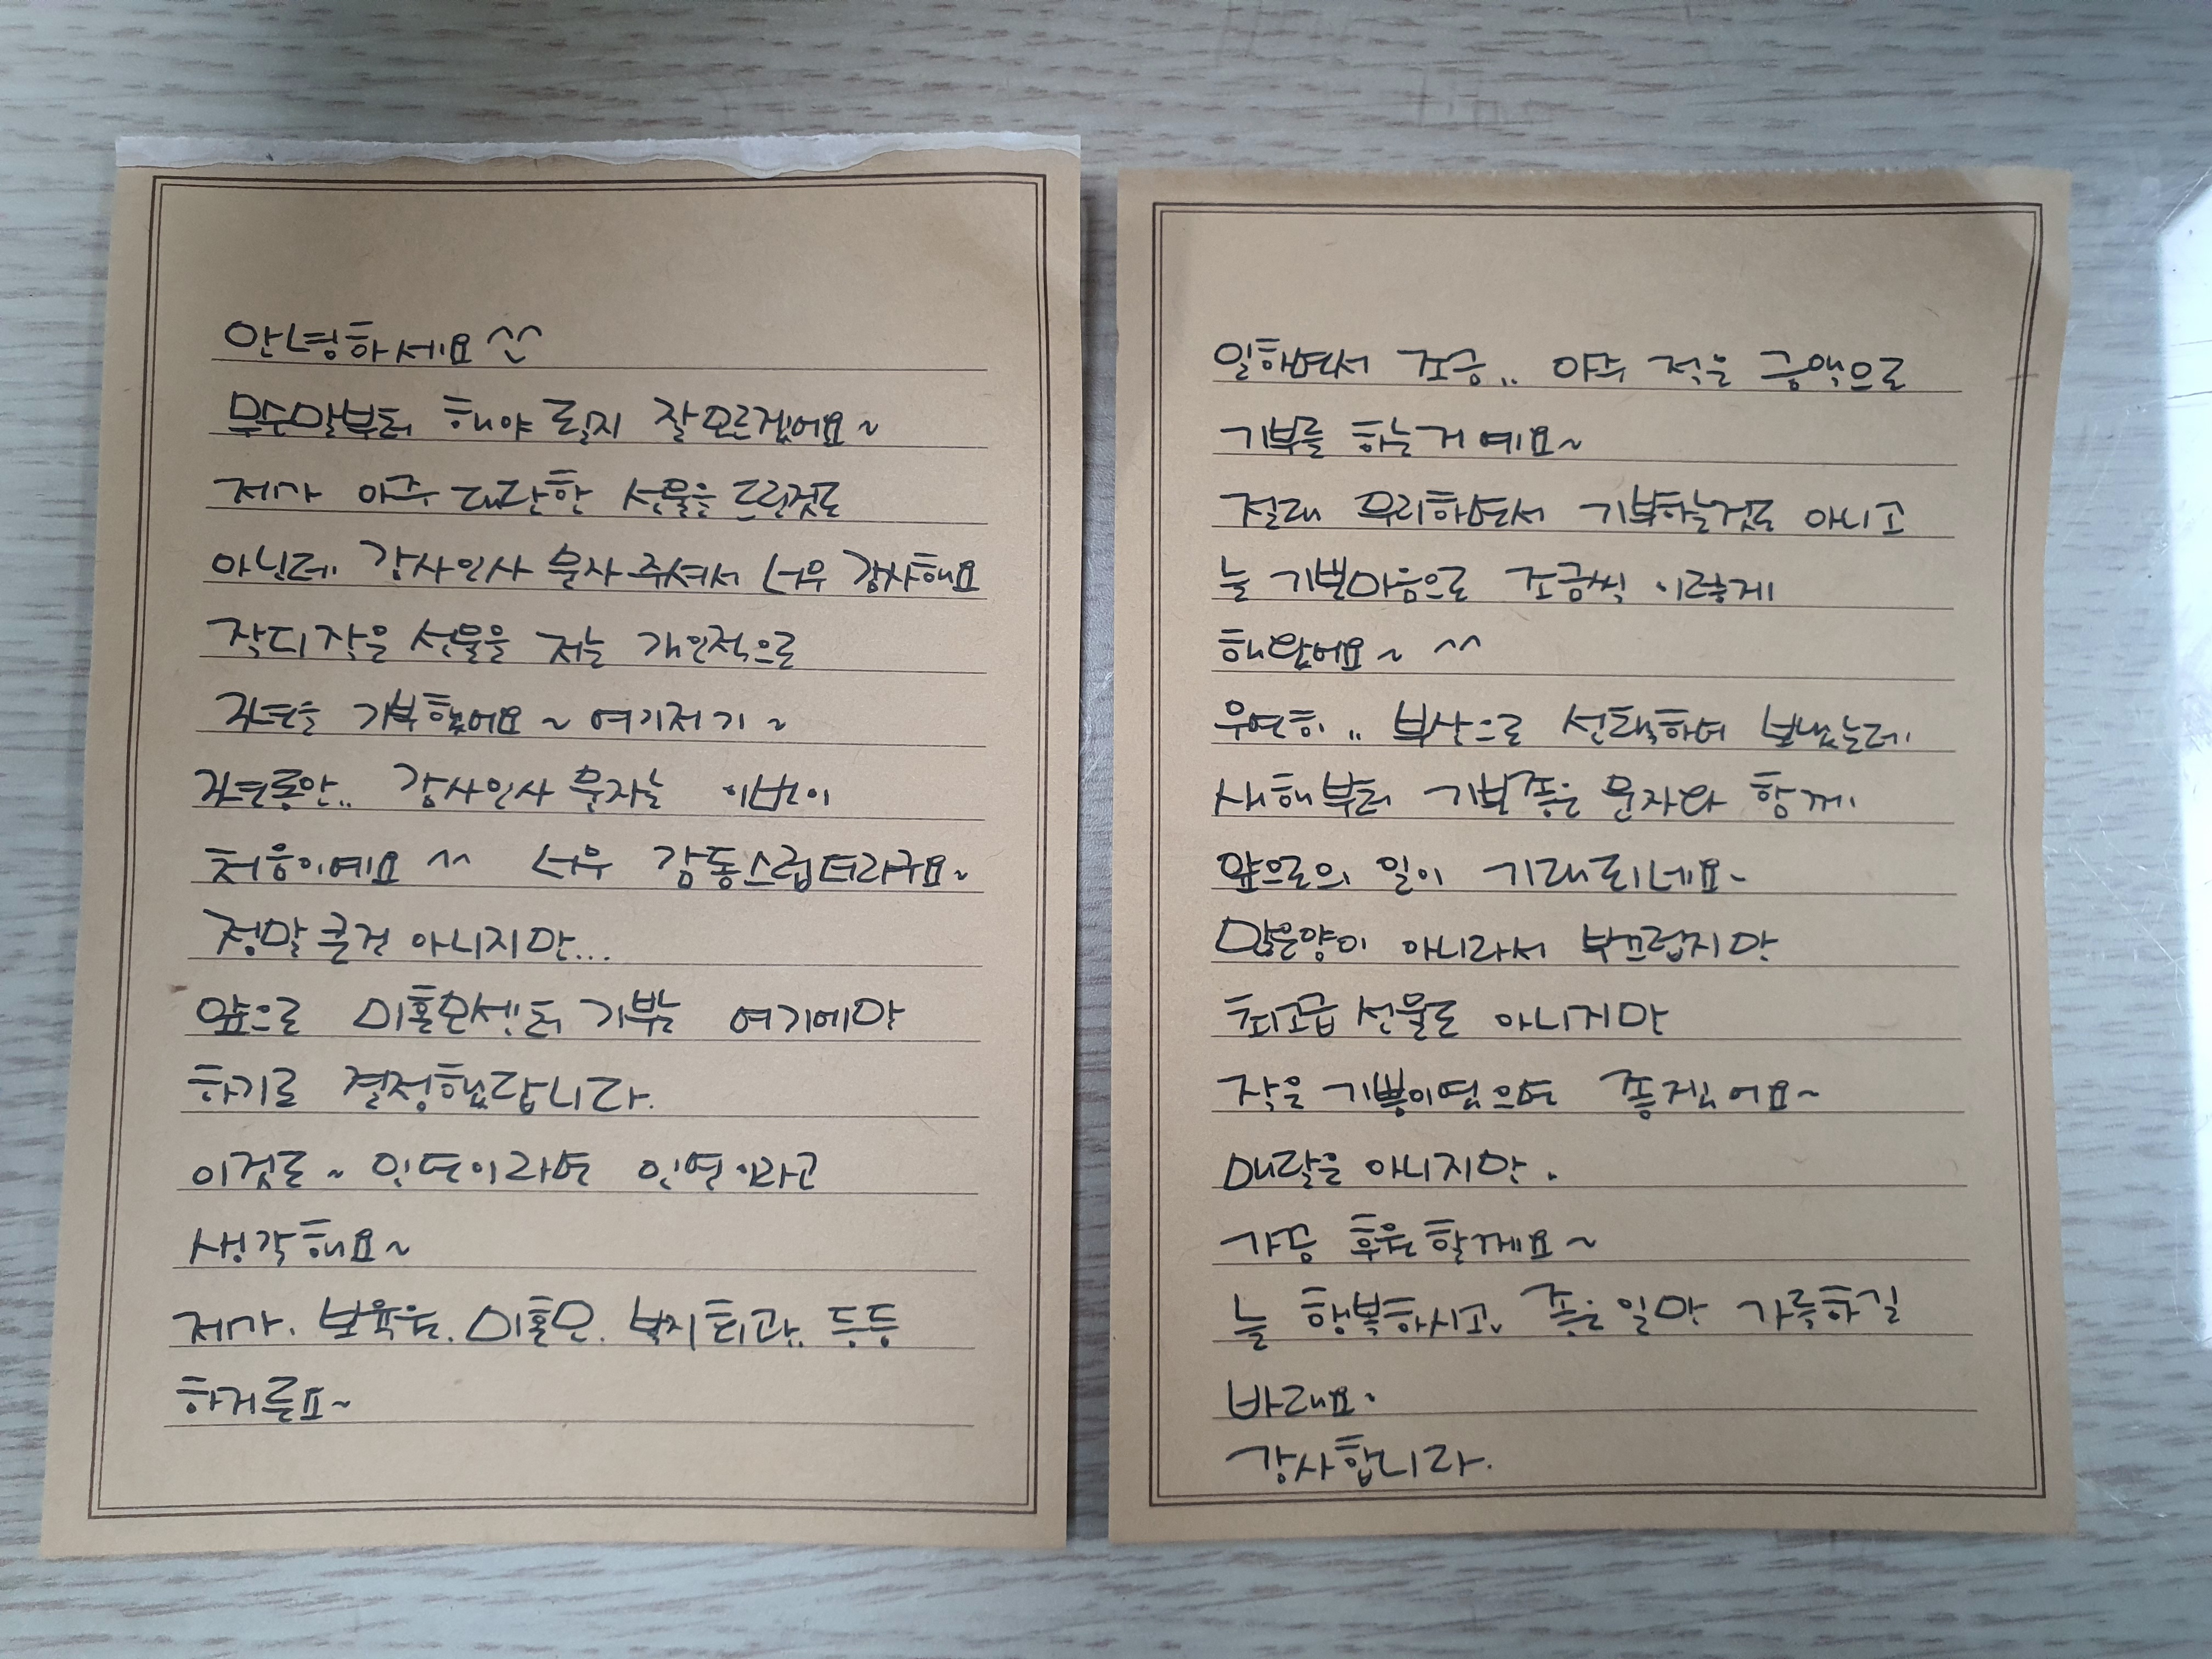 안녕하세요 ^^
무슨말부터 해야 될지 잘모르겠어요~
제가 아주 대단한 선물을 드린것도
아닌데. 감사인사 문자 주셔서 너무 감사해요
작디 작은 선물을 저는 개인적으로
기부했어요 ~ 여기저기 ~
감사인사 문자는 이번이
처음이예요 ^^ 너무 감동스럽더라구요~
정말 큰건 아니지만...
앞으로 미혼모센터 기부는 여기에만
하기로 결정했답니다.
이것도~ 인연이라면 인연이라고
생각해요~
제가. 보육원. 미혼모. 복지회관. 등등
하거든요~
일하면서 조금.. 아주 적은 금액으로
기부를 하는거 예요~
절대 무리하면서 기부하는것도 아니고
늘 기쁜마음으로 조금씩 이렇게
해왔어요~ ^^
우연히.. 부산으로 선택하여 보냈는데.
새해부터 기분좋은 문자와 함께.
앞으로의 일이 기대 되네요~
많은양이 아니라서 부끄럽지만
최고급 선물도 아니지만
작은 기쁨이였으면 좋겠어요~
매달은 아니지만.
가끔 후원할께요~
늘 행복하시고, 좋은일만 가득하길
바래요.
감사합니다.